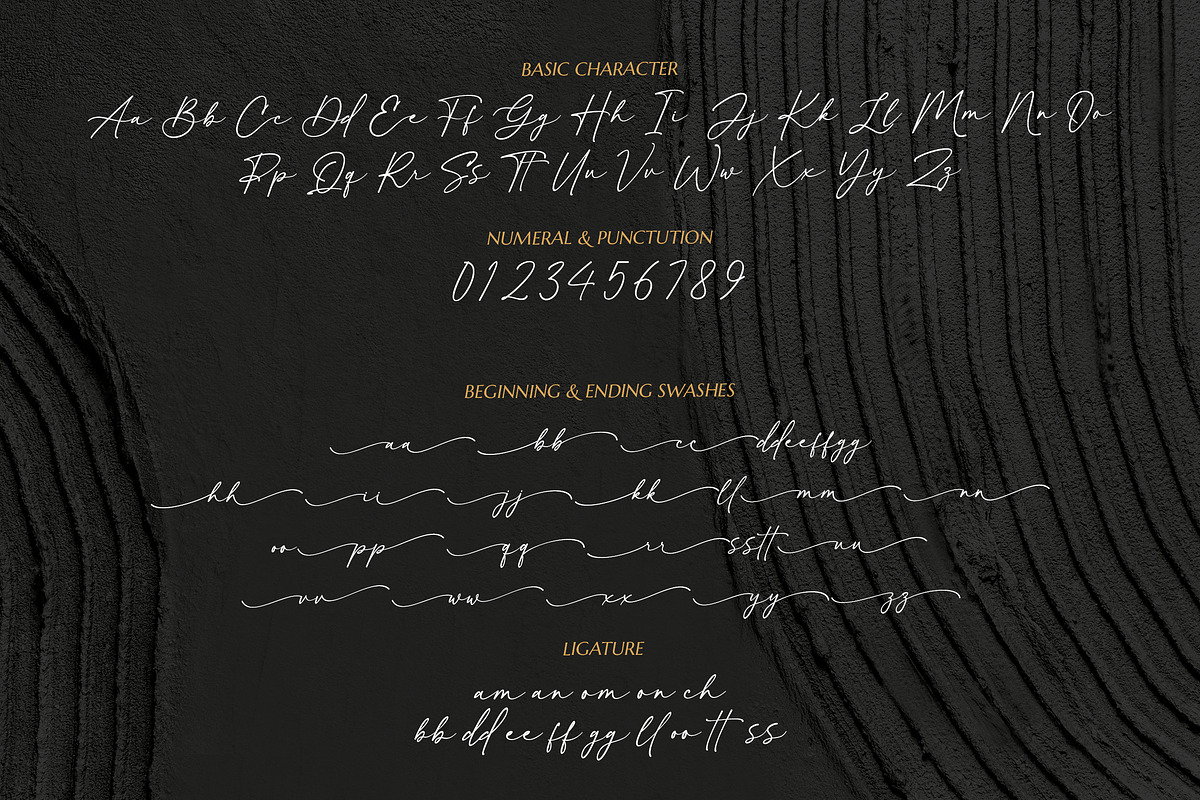 BASIC CHARACTER
Aa Bb Cc Dd Ee Ff Gg Hh Ii Jj Kk Ll Mm Nn Oo
Pp Qq Rr Ss Tt Uu Vv Ww Xx Yy Zz
NUMERAL & PUNCTUTION
0123456789
BEGINNING & ENDING SWASHES
aa bb cc ddeeffgg
hh ii jj kk ll mm nn
oo pp qq rr sstt uu
vv ww xx yy zz
LIGATURE
am an om on ch
bb dd ee ff gg ll oo tt ss